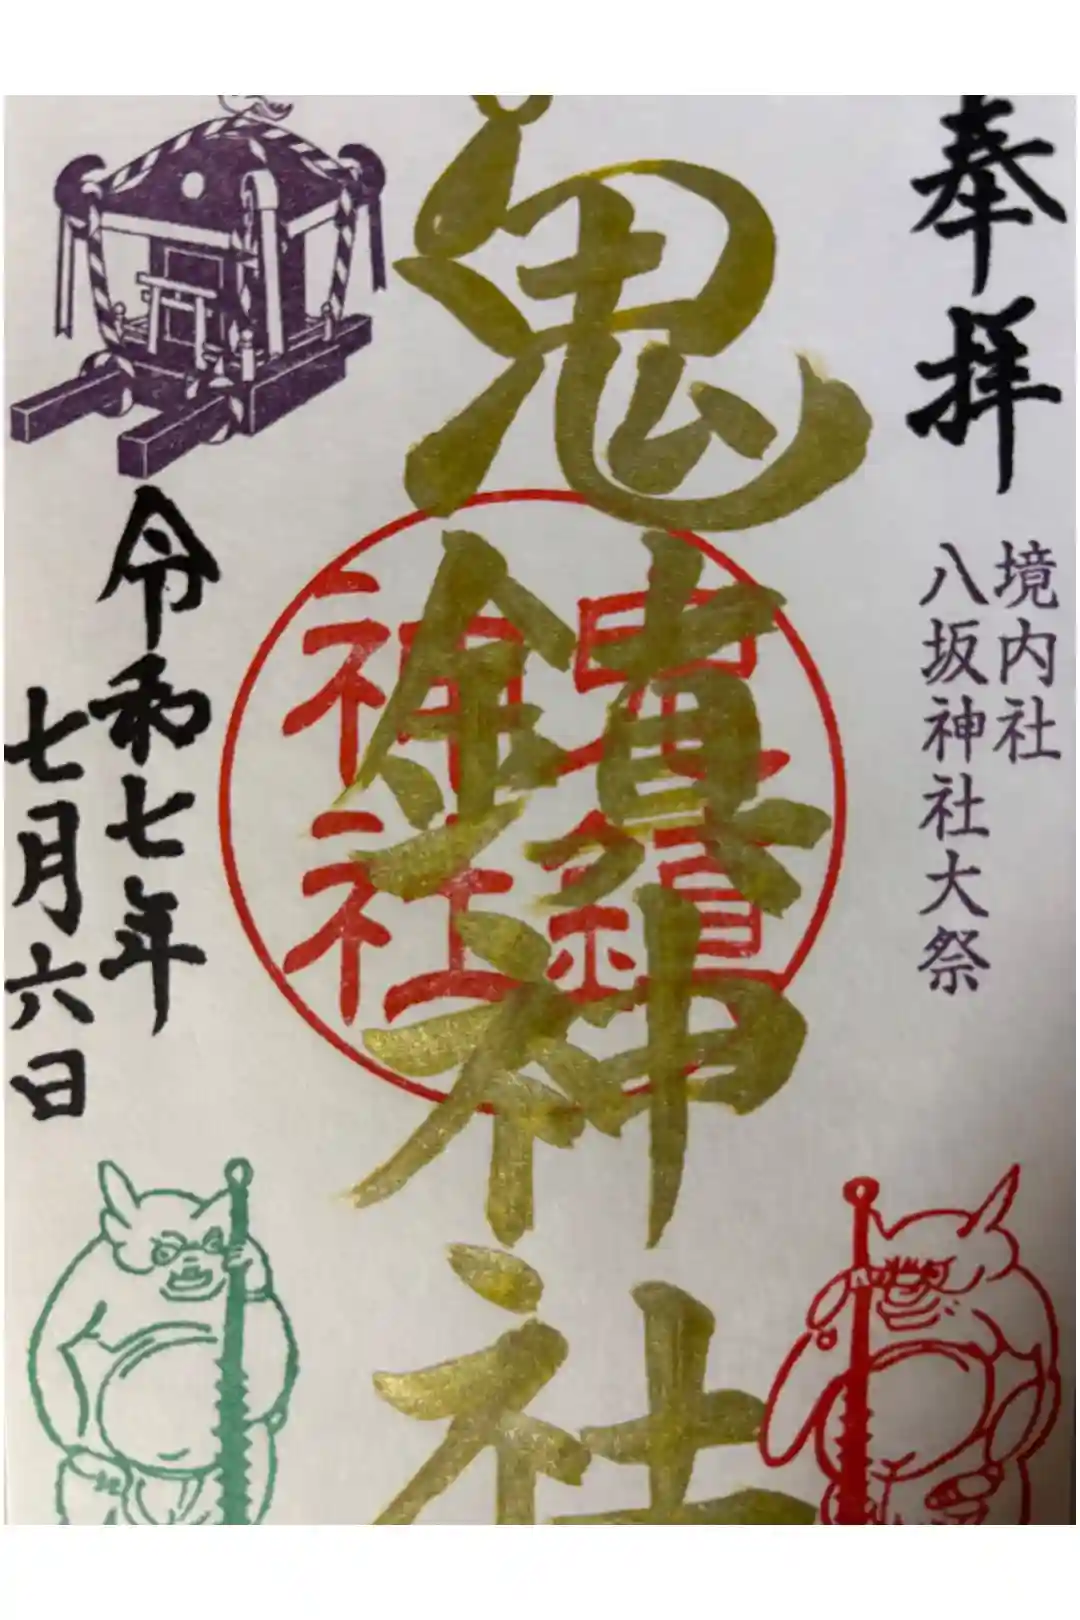 奉拝
境内社
八坂神社大祭
鬼鎮神社
神社
令和七年
七月六日